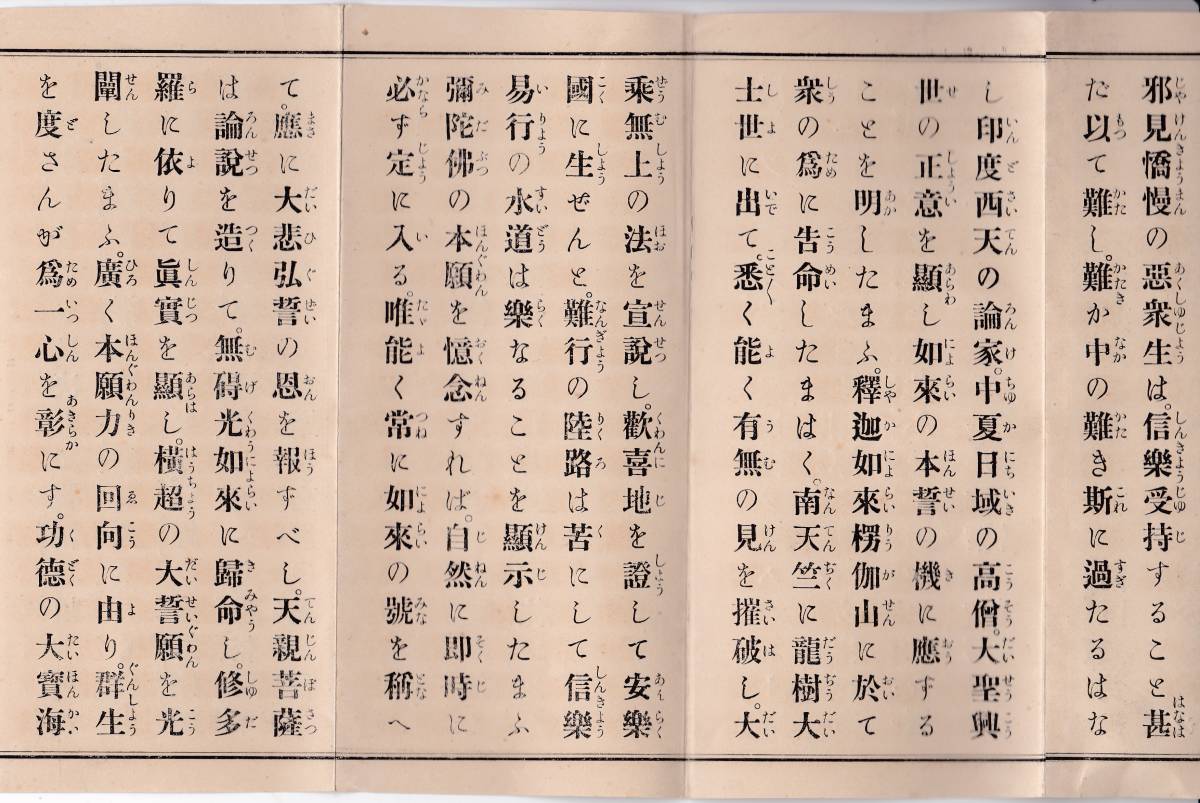 邪見憍慢の惡衆生は。信樂受持すること甚
だ以て難し。難か中の難き斯に過たるはな
し印度西天の論家。中夏日域の高僧。大聖興
世の正意を顯し如來の本誓の機に應する
ことを明したまふ。釋迦如來楞伽山に於て
衆の爲に告命したまはく。南天竺に龍樹大
士世に出て。悉く能く有無の見を摧破し。大
乘無上の法を宣說し。歡喜地を證して安樂
國に生ぜんと。難行の陸路は苦にして信樂
易行の水道は樂なることを顯示したまふ
彌陀佛の本願を憶念すれば。自然に即時に
必ず定に入る。唯能く常に如來の號を稱へ
て。應に大悲弘誓の恩を報すべし。天親菩薩
は論說を造りて。無碍光如來に歸命し。修多
羅に依りて眞實を顯し。橫超の大誓願を光
闡したまふ。廣く本願力の回向に由り。群生
を度さんが爲一心を彰にす。功德の大寶海